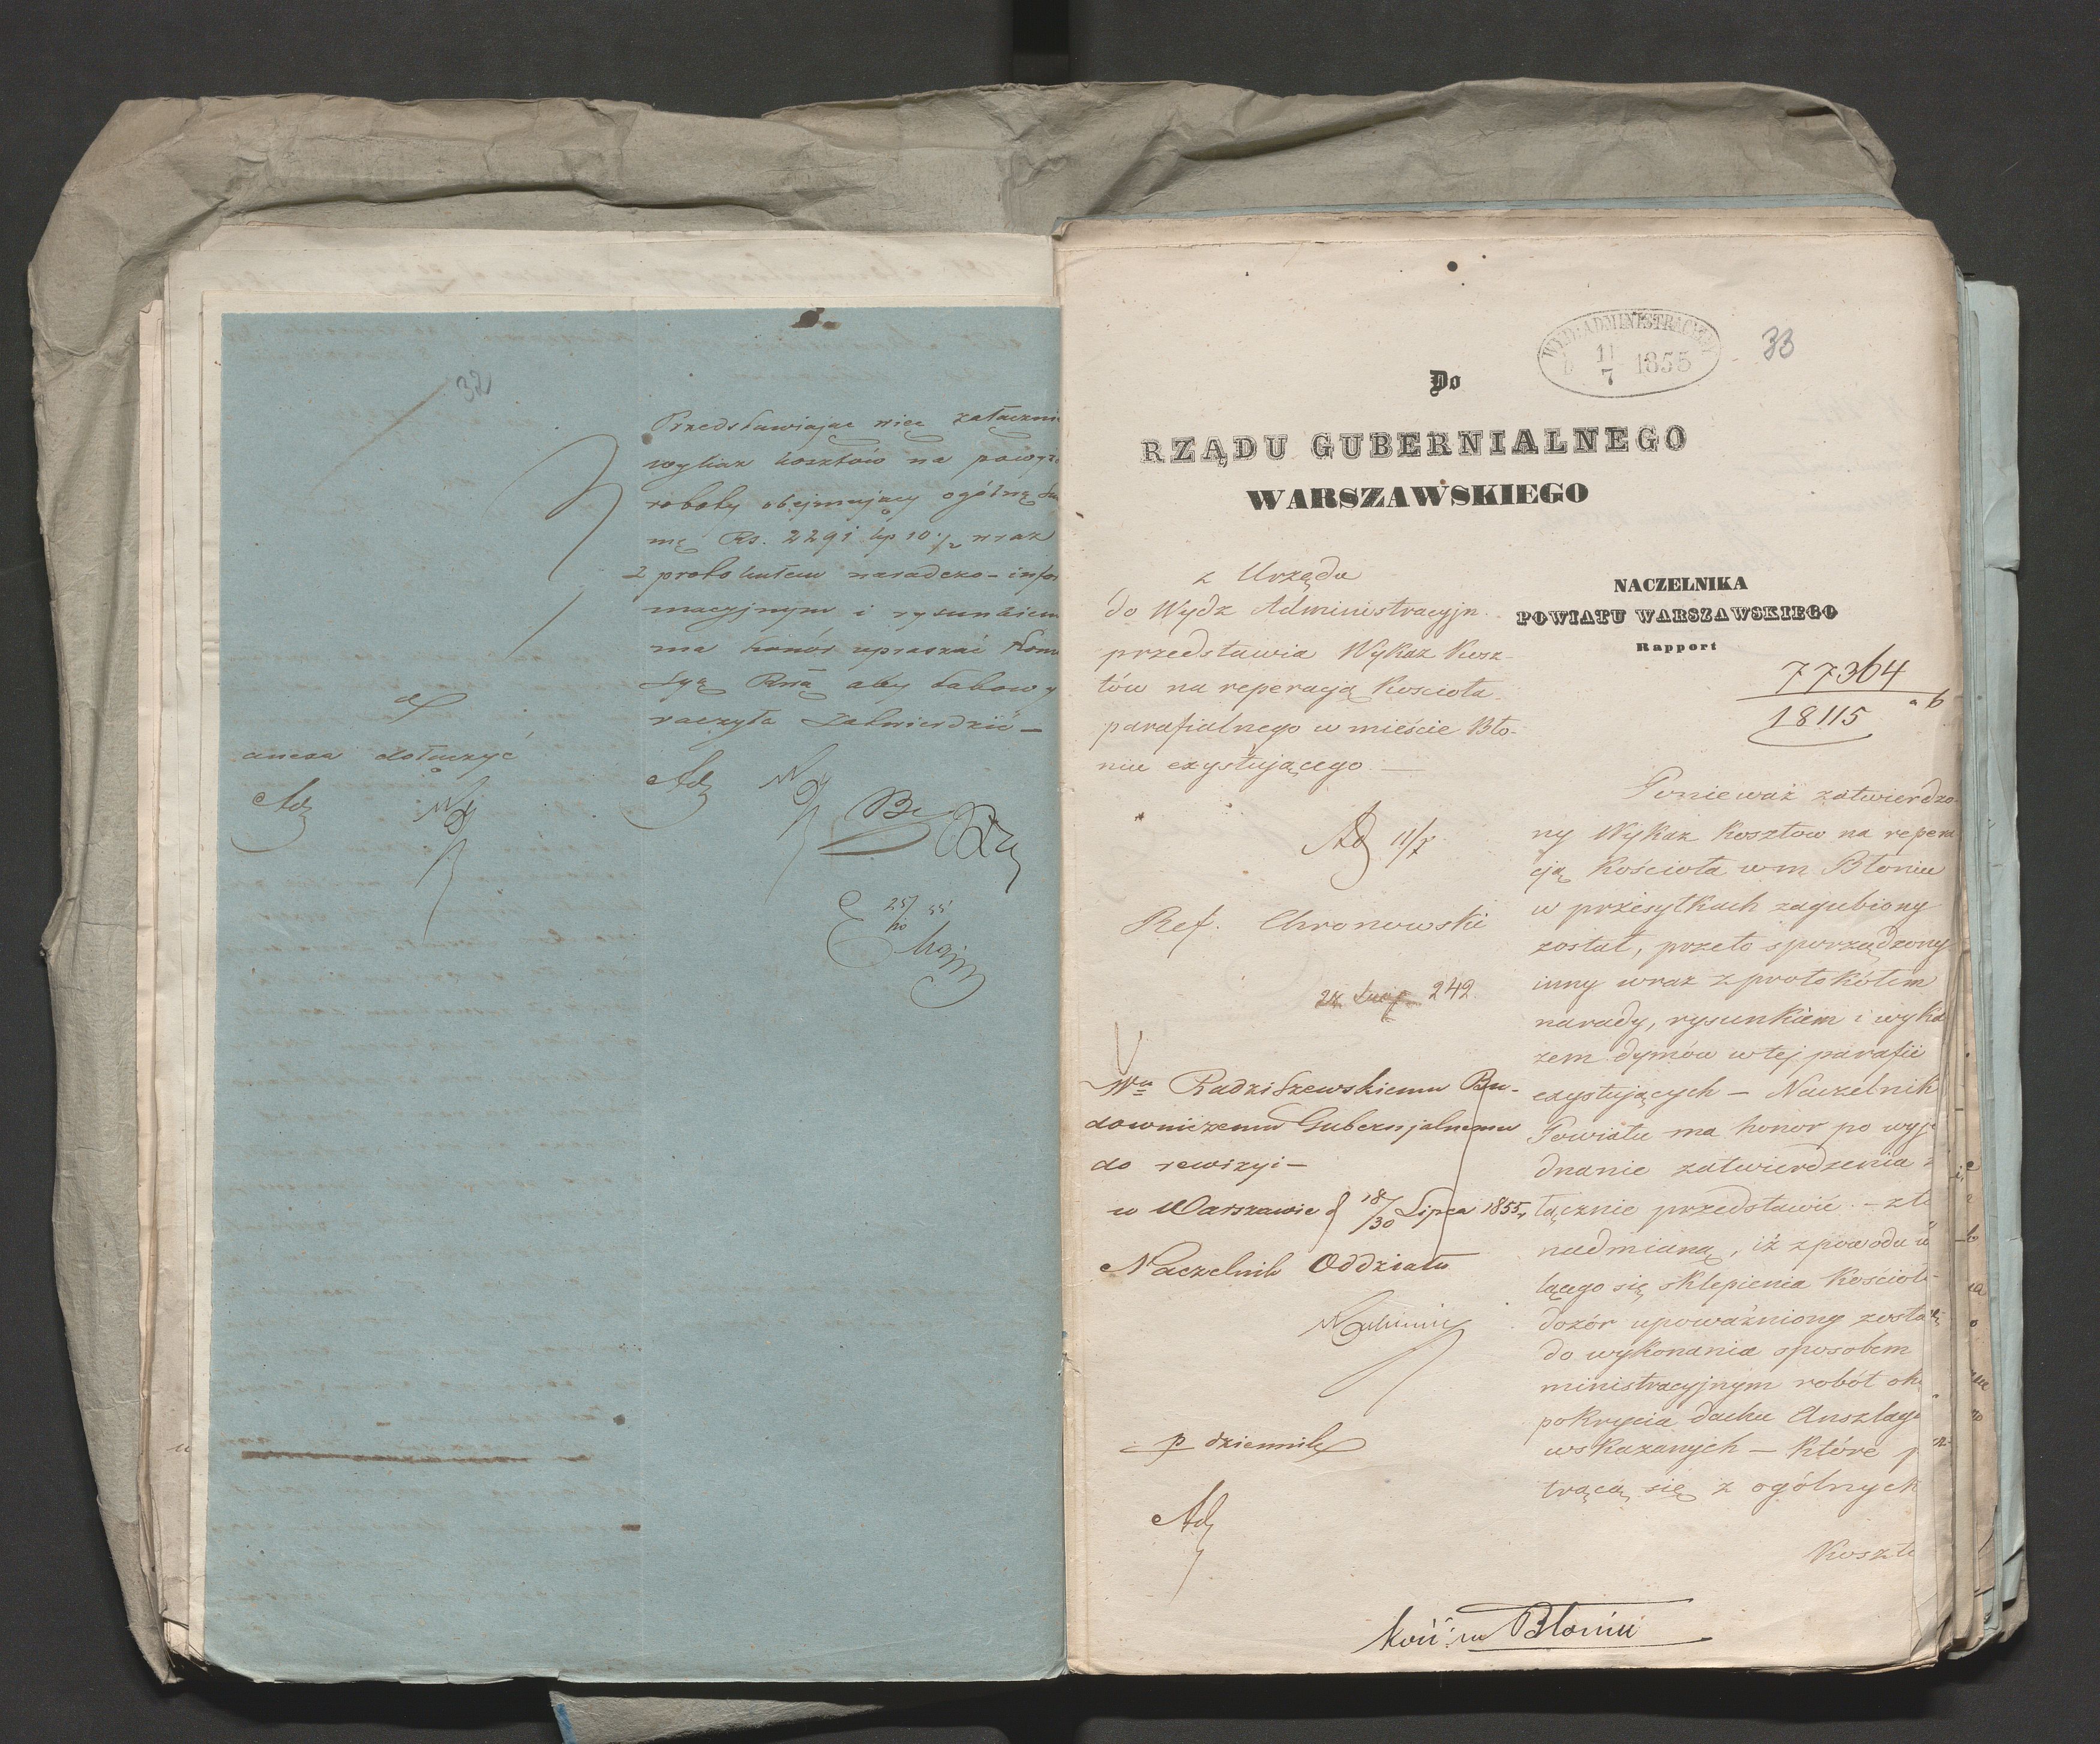 32
Przedstawiając więc załączni
wykaz kosztów na powyż
roboty obejmujący ogólną Su
mę Rs. 2291 kp 10 1/2 wraz
z protokułem naradczo-infor
macyjnym i rysunkiem
ma honor upraszać Kom
syą Rną aby takowy
raczyła Zatwierdzić —
anexa dołączyć
33
WYD: ADMINISTRACYJNY
D 11/7 1855
Do
RZĄDU GUBERNIALNEGO
WARSZAWSKIEGO
NACZELNIKA
POWIATU WARSZAWSKIEGO
Rapport
77364
18115
z Urzędu
do Wydz Administracyjn.
przedstawia Wykaz Kosz-
tów na reperacją Kościoła
parafialnego w mieście Bło-
niu exystującego —
11/7
Ref. Chronowski
242
Wu Radziszewskiemu Bu-
downiczemu Gubernjalnemu
do rewizyi —
w Warszawie d 18/30 Lipca 1855 r
Naczelnik Oddziału
p dziennik
Ponieważ zatwierdzo-
ny Wykaz Kosztów na repera
cją Kościoła w m Błoniu
w przesyłkach zagubiony
został, przeto sporządzony
inny wraz z protokółem
narady, rysunkiem i wyka
zem dymów w tej parafii
exystujących — Naczelnik
Powiatu ma honor po wyje
dnanie zatwierdzenia z
łącznie przedstawić — z tą
nadmianą, iż z powodu w
lącego się sklepienia Kościoła
dozór upoważniony zosta
do wykonania sposobem
ministracyjnym robót oko
pokrycia dachu Anszlage
wskazanych — które p
trącą się z ogólnych
Koszto
Koś: w Błoniu